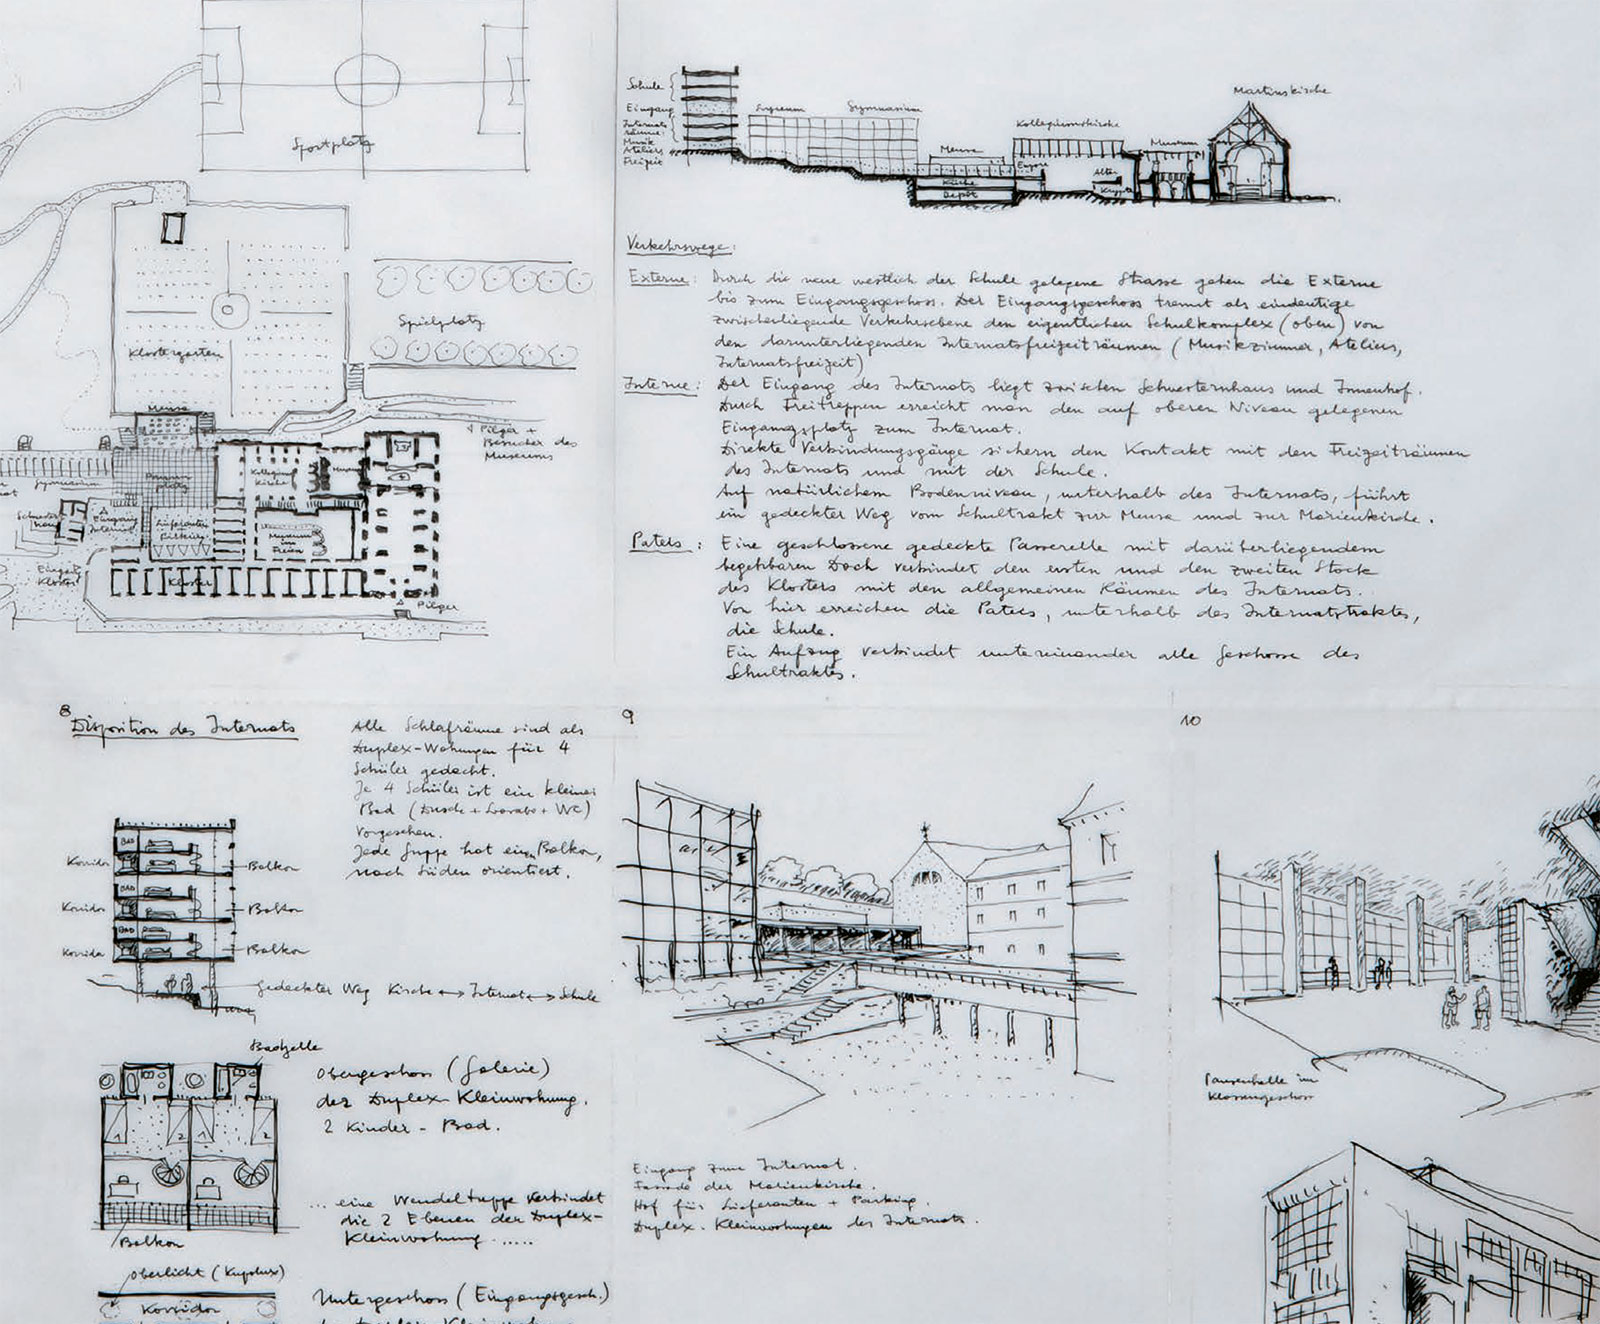 Sportplatz
Klostergarten
Spielplatz
Mensa
Pilger +
Besucher des
Museums
Gymnasium
Kollegiums
Kirche
Eingang
Internat
Lieferanten
Parking
Museum
im
Freien
Eingang
Kloster
Kloster
Pilger
Schule
Eingang
Internats
räume:
Musik
Ateliers
Freizeit
Lyceum
Gymnasium
Mensa
Küche
Depot
Kollegiumskirche
Alte
Krypta
Museum
Martinskirche
Verkehrswege:
Externe: Durch die neue westlich der Schule gelegene Strasse gehen die Externe
bis zum Eingangsgeschoss. Der Eingangsgeschoss trennt als eindeutige
zwischenliegende Verkehrsebene den eigentlichen Schulkomplex (oben) von
den darunterliegenden Internatsfreizeiträumen (Musikzimmer, Ateliers,
Internatsfreizeit)
Interne: Der Eingang des Internats liegt zwischen Schwesternhaus und Innenhof.
Durch Freitreppen erreicht man den auf oberen Niveau gelegenen
Eingangsplatz zum Internat.
Direkte Verbindungsgänge sichern den Kontakt mit den Freizeiträumen
des Internats und mit der Schule.
Auf natürlichem Bodenniveau, unterhalb des Internats, führt
ein gedeckter Weg vom Schultrakt zur Mensa und zur Marienkirche.
Paters: Eine geschlossene gedeckte Passerelle mit darüberliegendem
begehbaren Dach verbindet den ersten und den zweiten Stock
des Klosters mit den allgemeinen Räumen des Internats.
Von hier erreichen die Paters, unterhalb des Internatstraktes,
die Schule.
Ein Aufzug verbindet untereinander alle Geschosse des
Schultraktes.
8
Disposition des Internats
Alle Schlafräume sind als
Duplex-Wohungen für 4
Schüler gedacht.
Je 4 Schüler ist ein kleines
Bad (Dusche + Lavabo + WC)
vorgesehen.
Jede Gruppe hat einen Balkon,
nach Süden orientiert.
Korridor
BAD
Balkon
Korridor
BAD
Balkon
Korridor
BAD
Balkon
Gedeckter Weg Kirche ↔ Internat ↔ Schule
Badzelle
1 2 1 2
Balkon
Obergeschoss (Galerie)
der Duplex-Kleinwohung.
2 Kinder - Bad.
... eine Wendeltreppe verbindet
die 2 Ebenen der Duplex-
Kleinwohung .....
Oberlicht (Kuplux)
Korridor
Untergeschoss (Eingangsgesch.)
9
Eingang zum Internat.
Fassade der Marienkirche.
Hof für Lieferanten + Parking.
Duplex-Kleinwohungen des Internats.
10
Pausenhalle im
Klassengeschoss